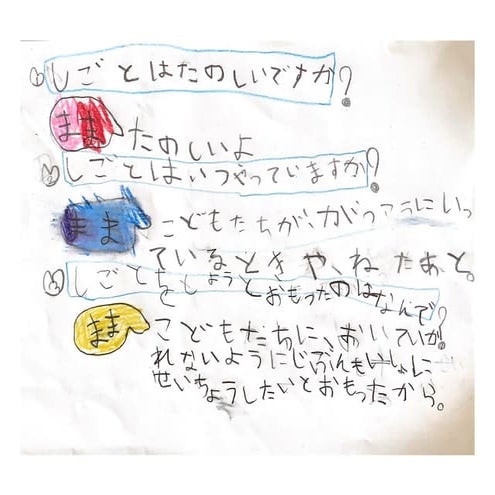 ① しごとはたのしいですか?
まま たのしいよ
② しごとはいつやっていますか?
まま こどもたちが、がっこうにいっ
ているときや、ねたあと。
③ しごとをしようとおもったのはなんで?
まま こどもたちに、おいていか
れないようにじぶんもいっしょに
せいちょうしたいとおもったから。